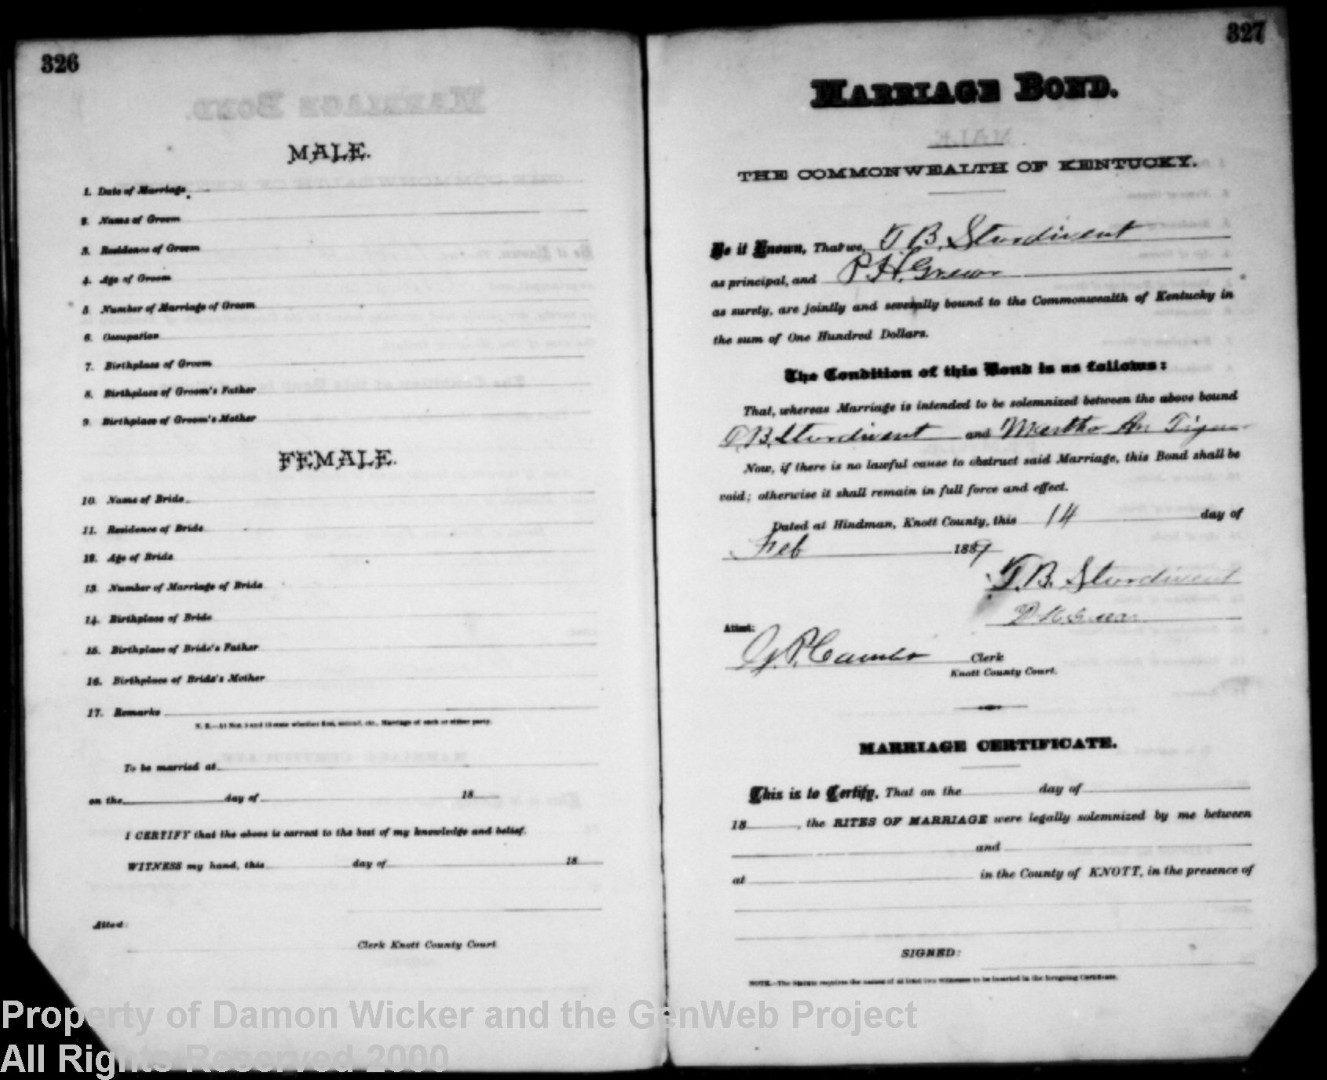 326
MALE.
1. Date of Marriage
2. Name of Groom
3. Residence of Groom
4. Age of Groom
5. Number of Marriage of Groom
6. Occupation
7. Birthplace of Groom
8. Birthplace of Groom's Father
9. Birthplace of Groom's Mother
FEMALE.
10. Name of Bride
11. Residence of Bride
12. Age of Bride
13. Number of Marriage of Bride
14. Birthplace of Bride
15. Birthplace of Bride's Father
16. Birthplace of Bride's Mother
17. Remarks
N. B.—At Nos. 5 and 13 state whether first, second, etc., Marriage of each or either party.
To be married at
on the day of 18
I CERTIFY that the above is correct to the best of my knowledge and belief.
WITNESS my hand, this day of 18
Attest:
Clerk Knott County Court
327
MARRIAGE BOND.
THE COMMONWEALTH OF KENTUCKY.
Be it Known, That we, T B. Sturdivent
as principal, and P. H.
as surety, are jointly and severally bound to the Commonwealth of Kentucky in
the sum of One Hundred Dollars.
The Condition of this Bond is as follows:
That, whereas Marriage is intended to be solemnized between the above bound
T. B. Sturdivent and Martha An
Now, if there is no lawful cause to obstruct said Marriage, this Bond shall be
void; otherwise it shall remain in full force and effect.
Dated at Hindman, Knott County, this 14 day of
Feb 1889
T. B. Sturdivent
Attest:
Clerk
Knott County Court.
MARRIAGE CERTIFICATE.
This is to Certify, That on the day of
18 , the RITES OF MARRIAGE were legally solemnized by me between
and
at in the County of KNOTT, in the presence of
SIGNED:
NOTE.—The Statute requires the names of at least two witnesses to be inserted in the foregoing Certificate.
Property of Damon Wicker and the GenWeb Project
All Rights Reserved 2000